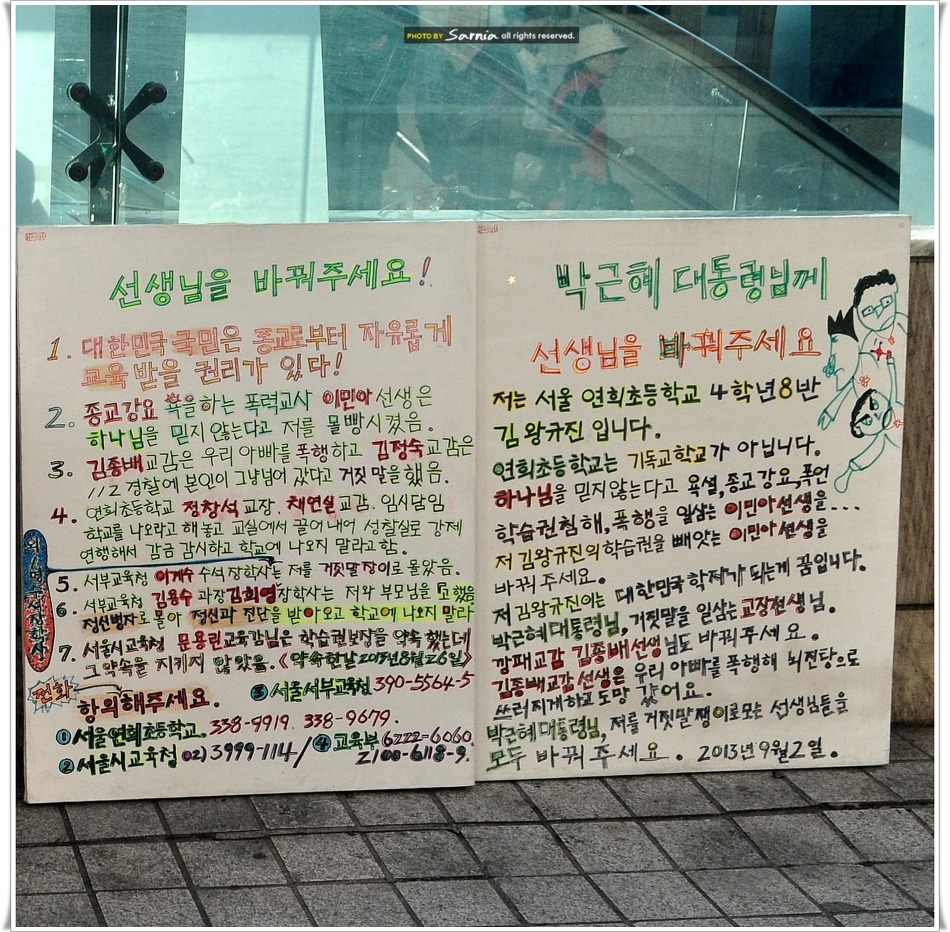 PHOTO BY Sarnia all rights reserved.
선생님을 바꿔주세요!
1. 대한민국 국민은 종교로부터 자유롭게
교육 받을 권리가 있다!
2. 종교강요 욕을 하는 폭력교사 이민아 선생은
하나님을 믿지 않는다고 저를 몰빵시켰음.
3. 김종배교감은 우리 아빠를 폭행하고 김정숙교감은
112 경찰에 본인이 그냥넘어 갔다고 거짓말을 했음.
4. 연희초등학교 정창석교장. 채연실교감. 임시담임
학교를 나오라고 해놓고 교실에서 끌어내어 성찰실로 강제
연행해서 감금 감시하고 학교에 나오지 말라고함.
5. 서부교육청 이게수 수석장학사는 저를 거짓말장이로 몰았음.
6 서부교육청 김용수 과장 김희영장학사는 저와 부모님을
정신병자로 몰아 정신과 진단을 받아오고 학교에 나오지 말라
7. 서울시교육청 문용린교육감님은 학습권보장을 약속했는데
그약속을 지키지 않았음.《약속한날 2013년8월26일》
전화
항의해주세요.
③ 서울서부교육청 390-5564-5
① 서울연희초등학교. 338-9919. 338-9679.
② 서울시교육청 02)3999-114/ ④ 교육부 6222-6060
2100-6118-9.
박근혜 대통령님께
선생님을 바꿔주세요
저는 서울 연희초등학교 4학년8반
김왕규진 입니다.
연희초등학교는 기독교학교가 아닙니다.
하나님을 믿지않는다고 욕설,종교강요,폭언
학습권침해,폭행을 일삼는 이민아선생을...
저 김왕규진의 학습권을 빼앗는 이민아선생을
바꿔주세요.
저 김왕규진이는 대한민국 학자가 되는게 꿈입니다.
박근혜대통령님, 거짓말을 일삼는교장선생님.
깡패교감 김종배선생님도 바꿔주세요.
김종배교감선생은 우리 아빠를 폭행해 뇌진탕으로
쓰러지게하고 도망 갔어요.
박근혜대통령님, 저를 거짓말쟁이로모는 선생님들을
모두 바꿔 주세요. 2013년9월2일.